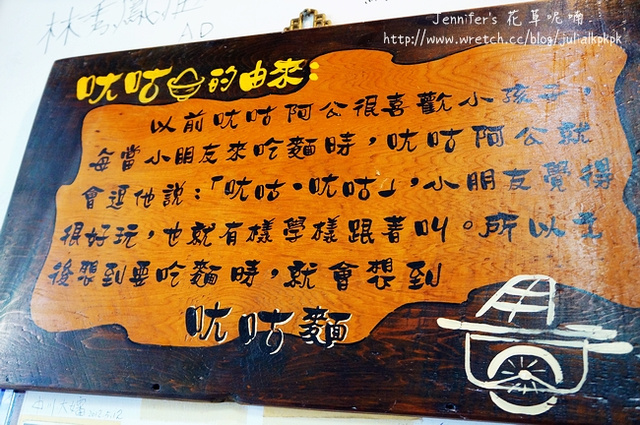 Jennifer's 花草呢喃
http://www.wretch.cc/blog/julialkpkpk
AD
吮咕的由來:
以前吮咕阿公很喜歡小孩子,
每當小朋友來吃麵時,吮咕阿公就
會逗他說:「吮咕·吮咕」,小朋友覺得
很好玩,也就有樣學樣跟著叫。所以至
後想到要吃麵時,就會想到
吮咕麵